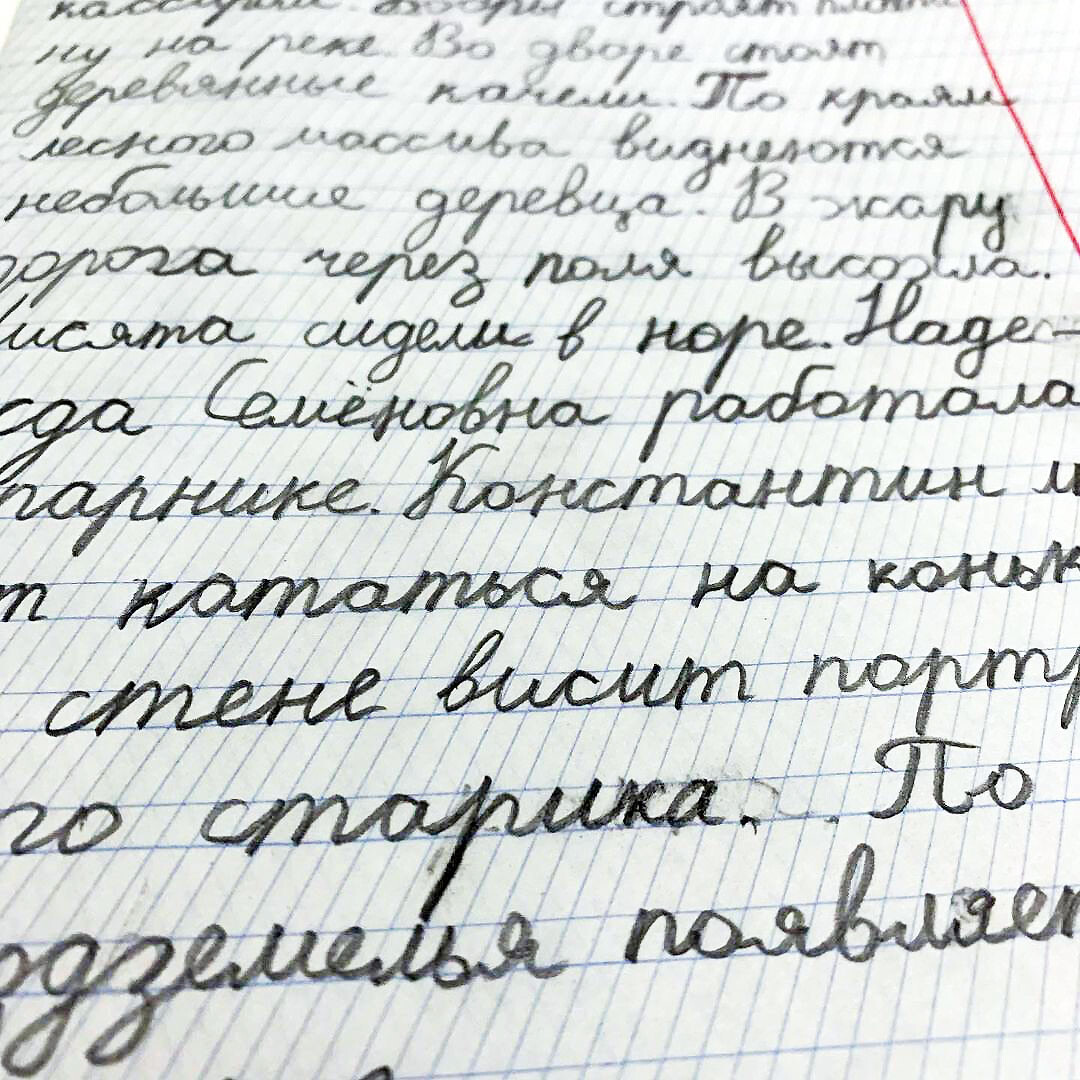 строят
ну на реке. Во дворе стоят
деревянные качели. По краям
лесного массива виднеются
небольшие деревца. В жару
дорога через поля высохла.
Лисята сидели в норе. Наде-
жда Семёновна работала
парнике. Константин
т кататься на коньк
стене висит портр
го старика. По
одземелья появляет